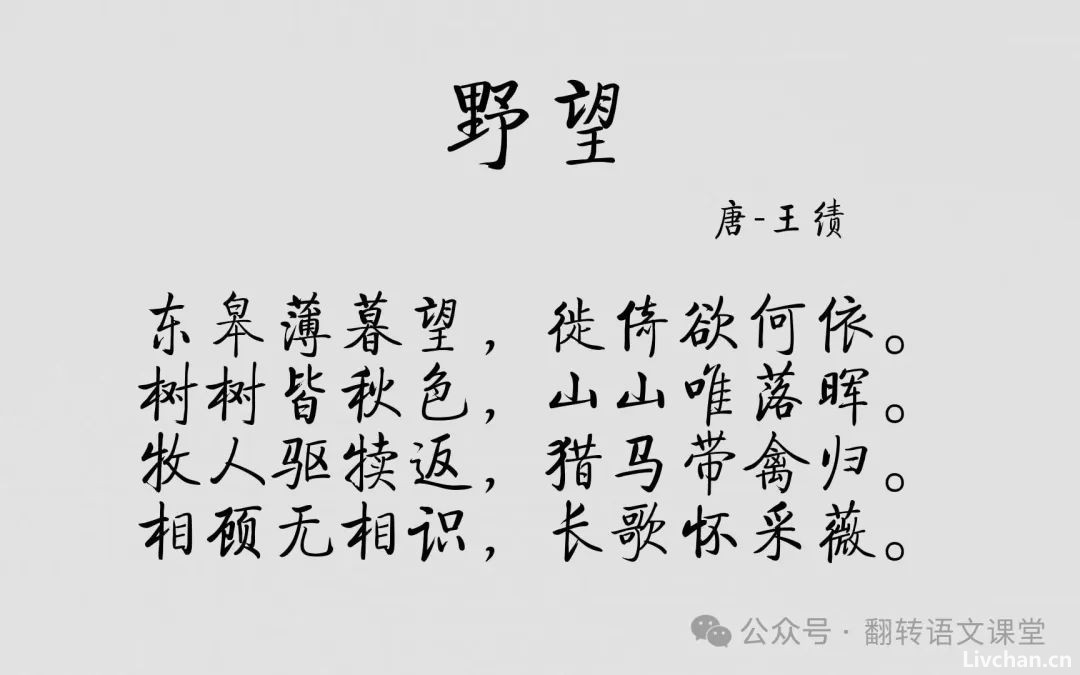 野望
唐-王绩
东皋薄暮望，徙倚欲何依。
树树皆秋色，山山唯落晖。
牧人驱犊返，猎马带禽归。
相顾无相识，长歌怀采薇。
公众号·翻转语文课堂
Livchan.cn